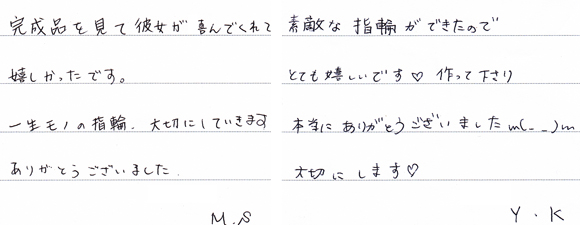 完成品を見て彼女が喜んでくれて
嬉しかったです。
一生モノの指輪、大切にしていきます
ありがとうございました.
M.S
素敵な指輪ができたので
とても嬉しいです♡ 作って下さり
本当にありがとうございましたm(_ _)m
大切にします♡
Y.K